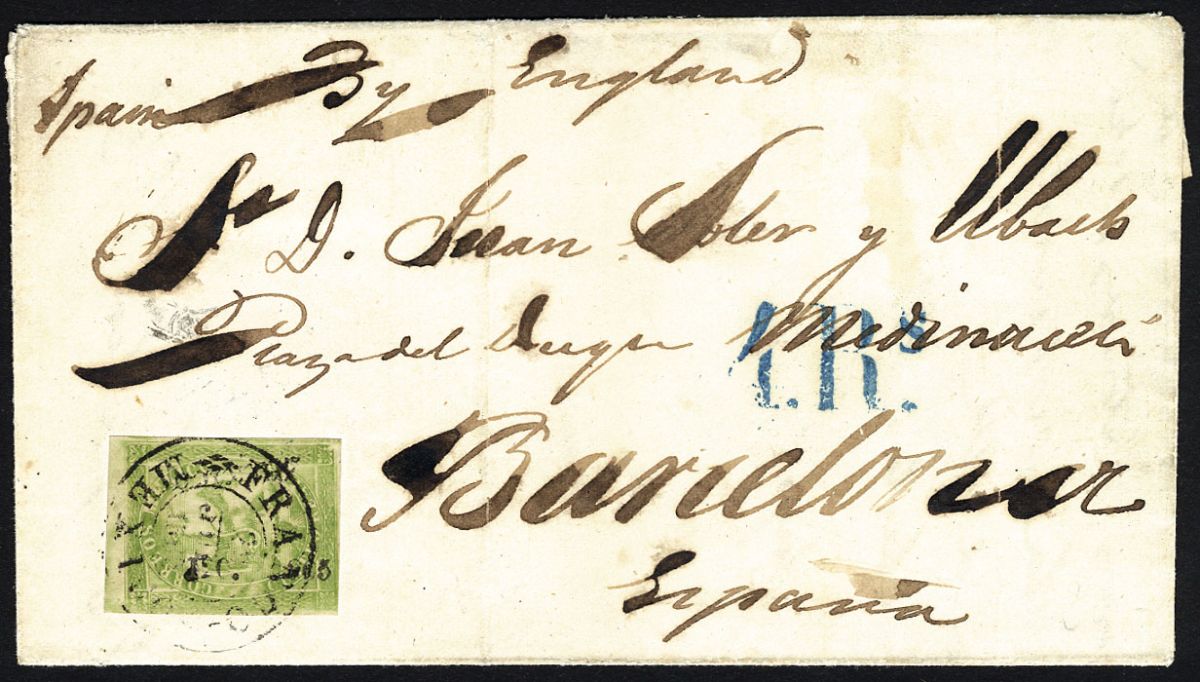 Spain By England
Sr D. Juan Soler y Ubach
Plaza del Duque Medinaceli
4.Rs.
Barcelona
España
FRA